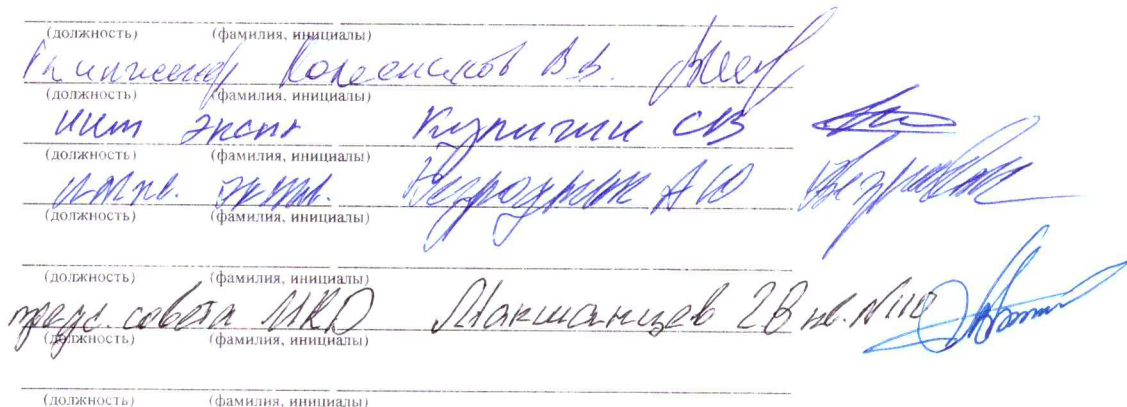 (должность) (фамилия, инициалы)
Гл инженер Колесников В В.
(должность) (фамилия, инициалы)
инж экспл Купигин СВ
(должность) (фамилия, инициалы)
инж. экпл. АЮ
(должность) (фамилия, инициалы)
(должность) (фамилия, инициалы)
предс. совета МКД Макшанцев 28 кв. №110
(должность) (фамилия, инициалы)
(должность) (фамилия, инициалы)